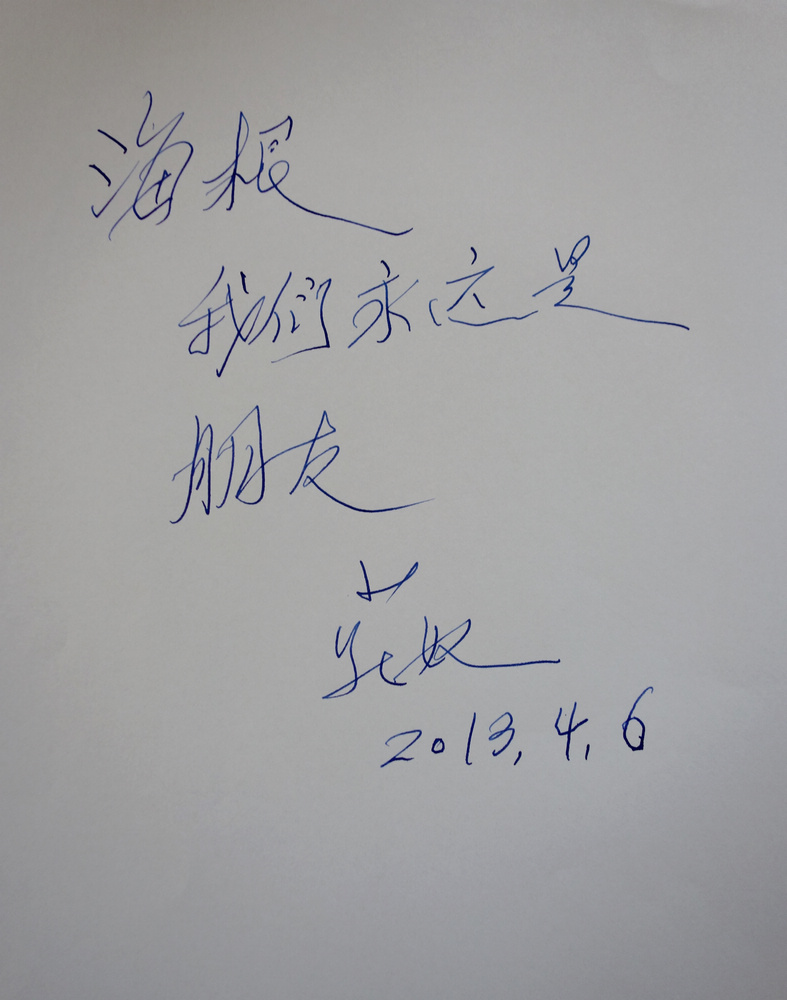 海根
我们永远是
朋友
庄奴
2013.4.6